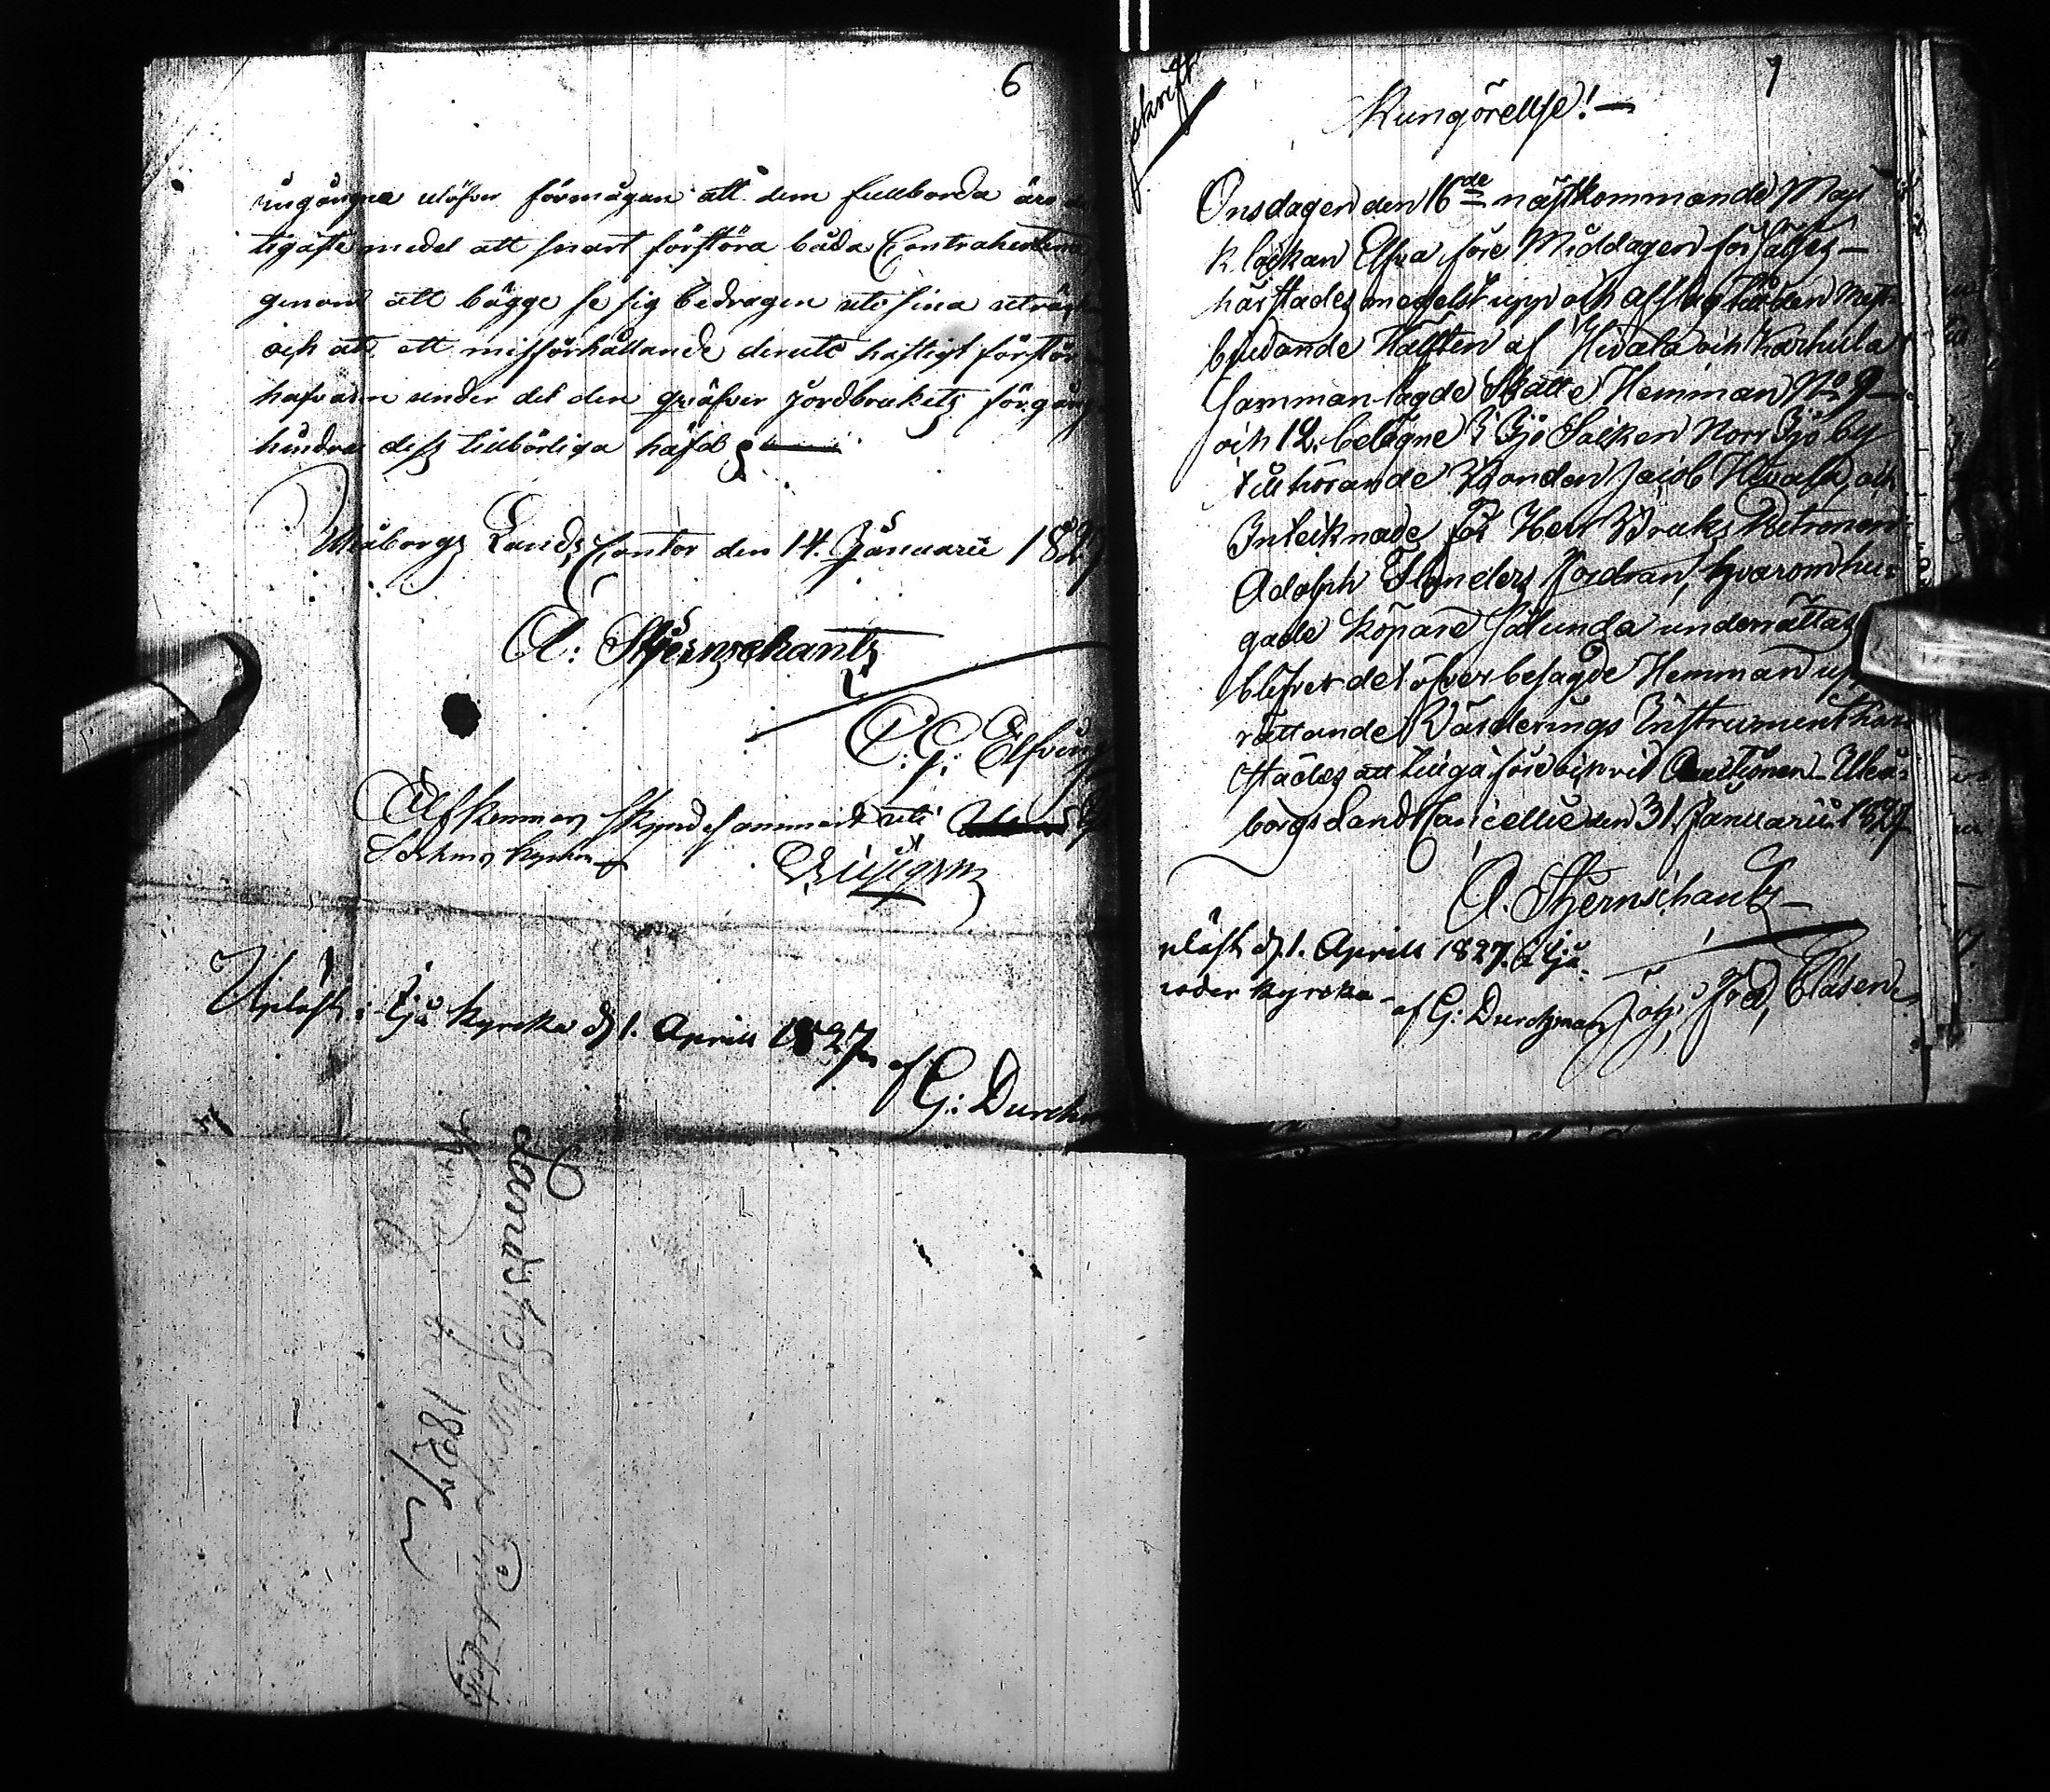 6
ingångne utöfver förmågan att dem fullborda äro
tigaste medel att snart förstöra båda Contrahenterne
genom att bägge se sig bedragen uti sina
och att ett missförhållande deruti häftigt
hafvaren under det den qväfver Jordbrukets
hindra dess tillbörliga häfd
Uleåborgs Lands Contor den 14. Januarii 1827
A: Stjernschantz
C: G: Elfving
Afkunnas skyndesammast uti
Sockens kyrka
Upläst i Ijå kyrka d 1. Aprill 1827
af G: Durchm
Landshöfdinge Embetets
1827
7
skrift
Kungörellse!
Onsdagen den 16de nästkommande Maji
klockan Elfva före Middagen försäljes
härstädes medelst upp och afslag till den mest
bjudande Hälften af Hivala och Karhula
sammanlagde Skatte Hemman No 9
och 12. belägne i Ijo Socken Norr Ijo by
tillhörande Bonden Jacob Hivala, och
Inteiknade för Herr Bruks Patronen
Adolph Flanders fordran, hvarom hu-
gade Köpare sålunda underrättas
blifver det öfver besagde Hemman up
rättande Värderings Instrument här
städes att tillgå före och vid Auctionen. Uleå-
borgs Lands Cancellie den 31. Januarii 1827
A. Stjernschantz
pläst d. 1. Aprill 1827. i Ijå
moder kyrka
af G: Durchman
Clasen